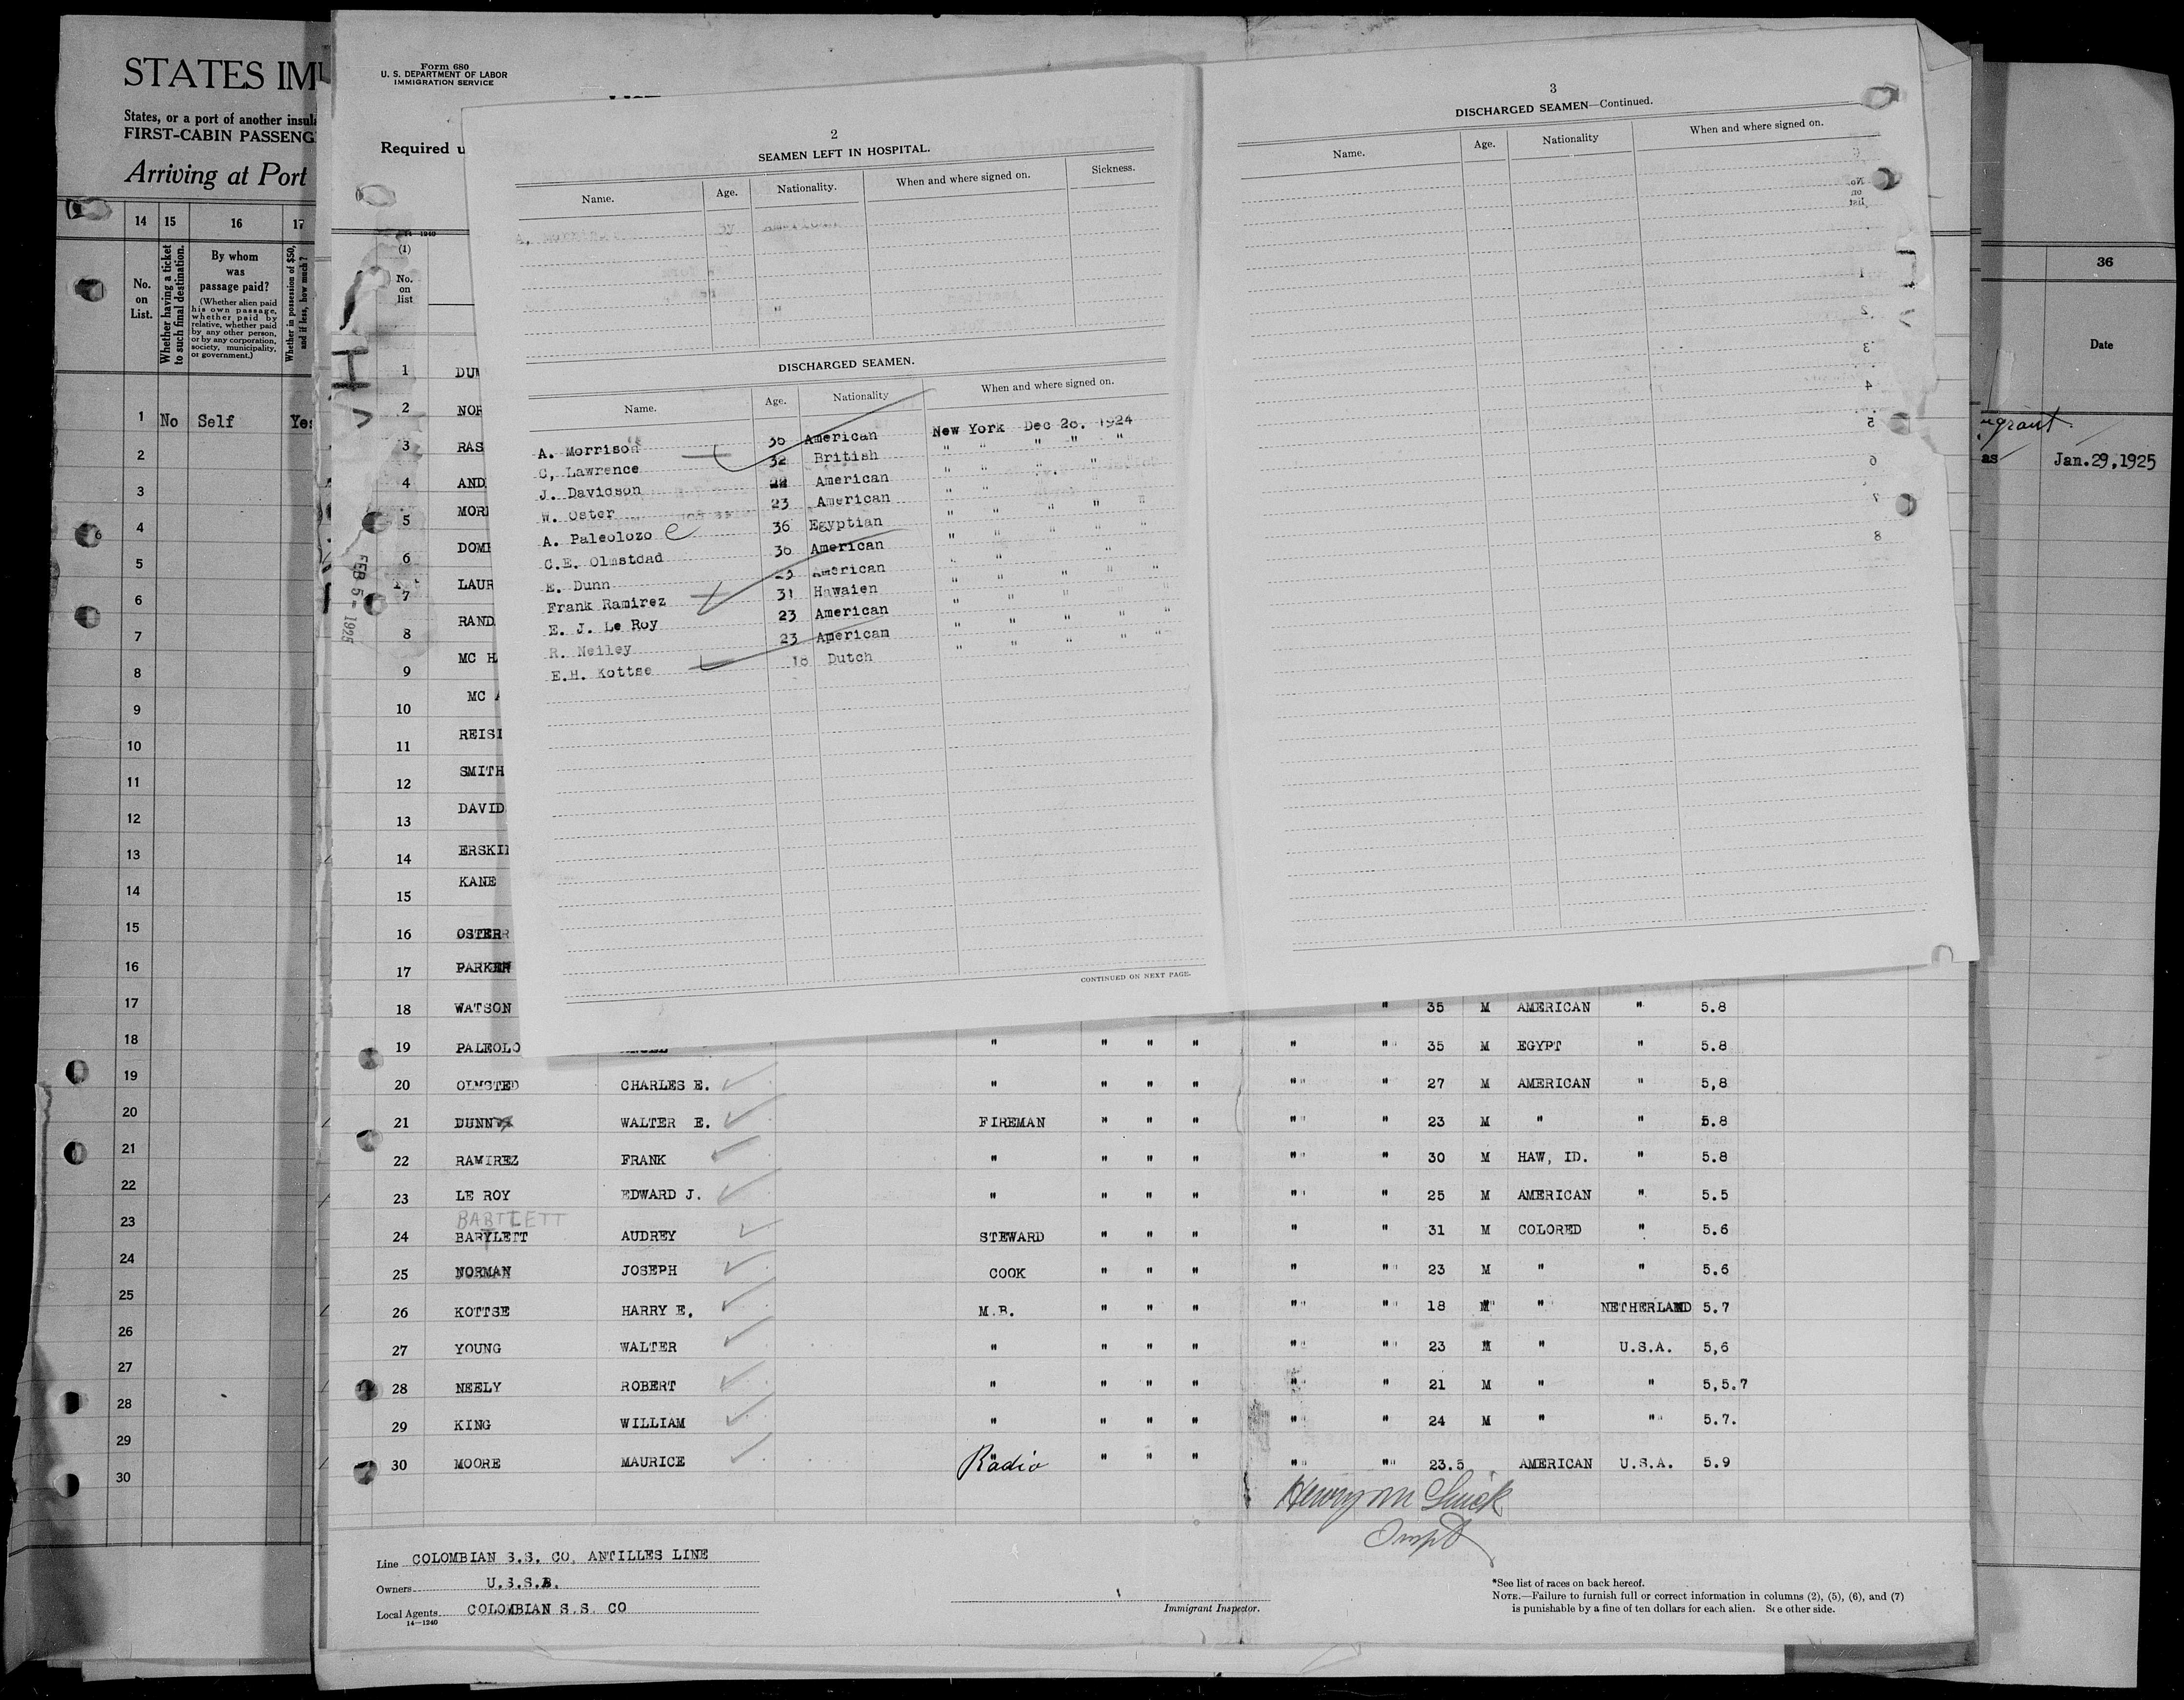 STATES IM
States, or a port of another insul
FIRST-CABIN PASSENG
Arriving at Port
14 15 16 17
No. on List.
Whether having a ticket to such final destination.
By whom was passage paid?
(Whether alien paid his own passage, whether paid by relative, whether paid by any other person, or by any corporation, society, municipality, or government.)
Whether in possession of $50, and if less, how much?
1 No Self Yes
2
3
4
5
6
7
8
9
10
11
12
13
14
15
16
17
18
19
20
21
22
23
24
25
26
27
28
29
30
Form 680
U. S. DEPARTMENT OF LABOR
IMMIGRATION SERVICE
Required u
(1)
No. on list
FEB 5 - 1925
1 DUM
2 NOR
3 RAS
4 AND
5 MOR
6 DOM
7 LAUR
8 RAND
9 MC H
10 MC A
11 REISI
12 SMITH
13 DAVID
14 ERSKI
15 KANE
16 OSTER
17 PARKER
2
SEAMEN LEFT IN HOSPITAL.
Name. Age. Nationality. When and where signed on. Sickness.
DISCHARGED SEAMEN.
Name. Age. Nationality When and where signed on.
A. Morrison 36 American New York Dec 26. 1924
C, Lawrence 32 British " " " " "
J. Davidson 22 American " " " "
W. Oster 23 American " "
A. Paleolozo 36 Egyptian " " " " "
C.E. Olmstdad 30 American " " " " "
E. Dunn 23 American " " "
Frank Ramirez 31 Hawaien " " " " "
E. J. Le Roy 23 American " " "
R. Neiley 23 American " " " " "
E.H. Kottse 18 Dutch " " " " "
CONTINUED ON NEXT PAGE.
3
DISCHARGED SEAMEN—Continued.
Name. Age. Nationality When and where signed on.
18 WATSON " 35 M AMERICAN " 5.8
19 PALEOLO " " " " " " 35 M EGYPT " 5.8
20 OLMSTED CHARLES E. " " " " " " 27 M AMERICAN " 5,8
21 DUNN WALTER E. FIREMAN " " " " " 23 M " " 5.8
22 RAMIREZ FRANK " " " " " " 30 M HAW, ID. " 5.8
23 LE ROY EDWARD J. " " " " " " 25 M AMERICAN " 5.5
BARTLETT
24 BARTLETT AUDREY STEWARD " " " " " 31 M COLORED " 5.6
25 NORMAN JOSEPH COOK " " " " " 23 M " " 5.6
26 KOTTSE HARRY E. M.B. " " " " " 18 M " NETHERLAND 5.7
27 YOUNG WALTER " " " " " " 23 M " U.S.A. 5,6
28 NEELY ROBERT " " " " " " 21 M " " 5,5.7
29 KING WILLIAM " " " " " " 24 M " " 5.7.
30 MOORE MAURICE Radio " " " " " 23.5 AMERICAN U.S.A. 5.9
Inspt
Line COLOMBIAN S.S. CO, ANTILLES LINE
Owners U.S.S.B.
Local Agents COLOMBIAN S.S. CO
14—1240
Immigrant Inspector.
*See list of races on back hereof.
NOTE.—Failure to furnish full or correct information in columns (2), (5), (6), and (7)
is punishable by a fine of ten dollars for each alien. See other side.
36
Date
as Jan.29,1925